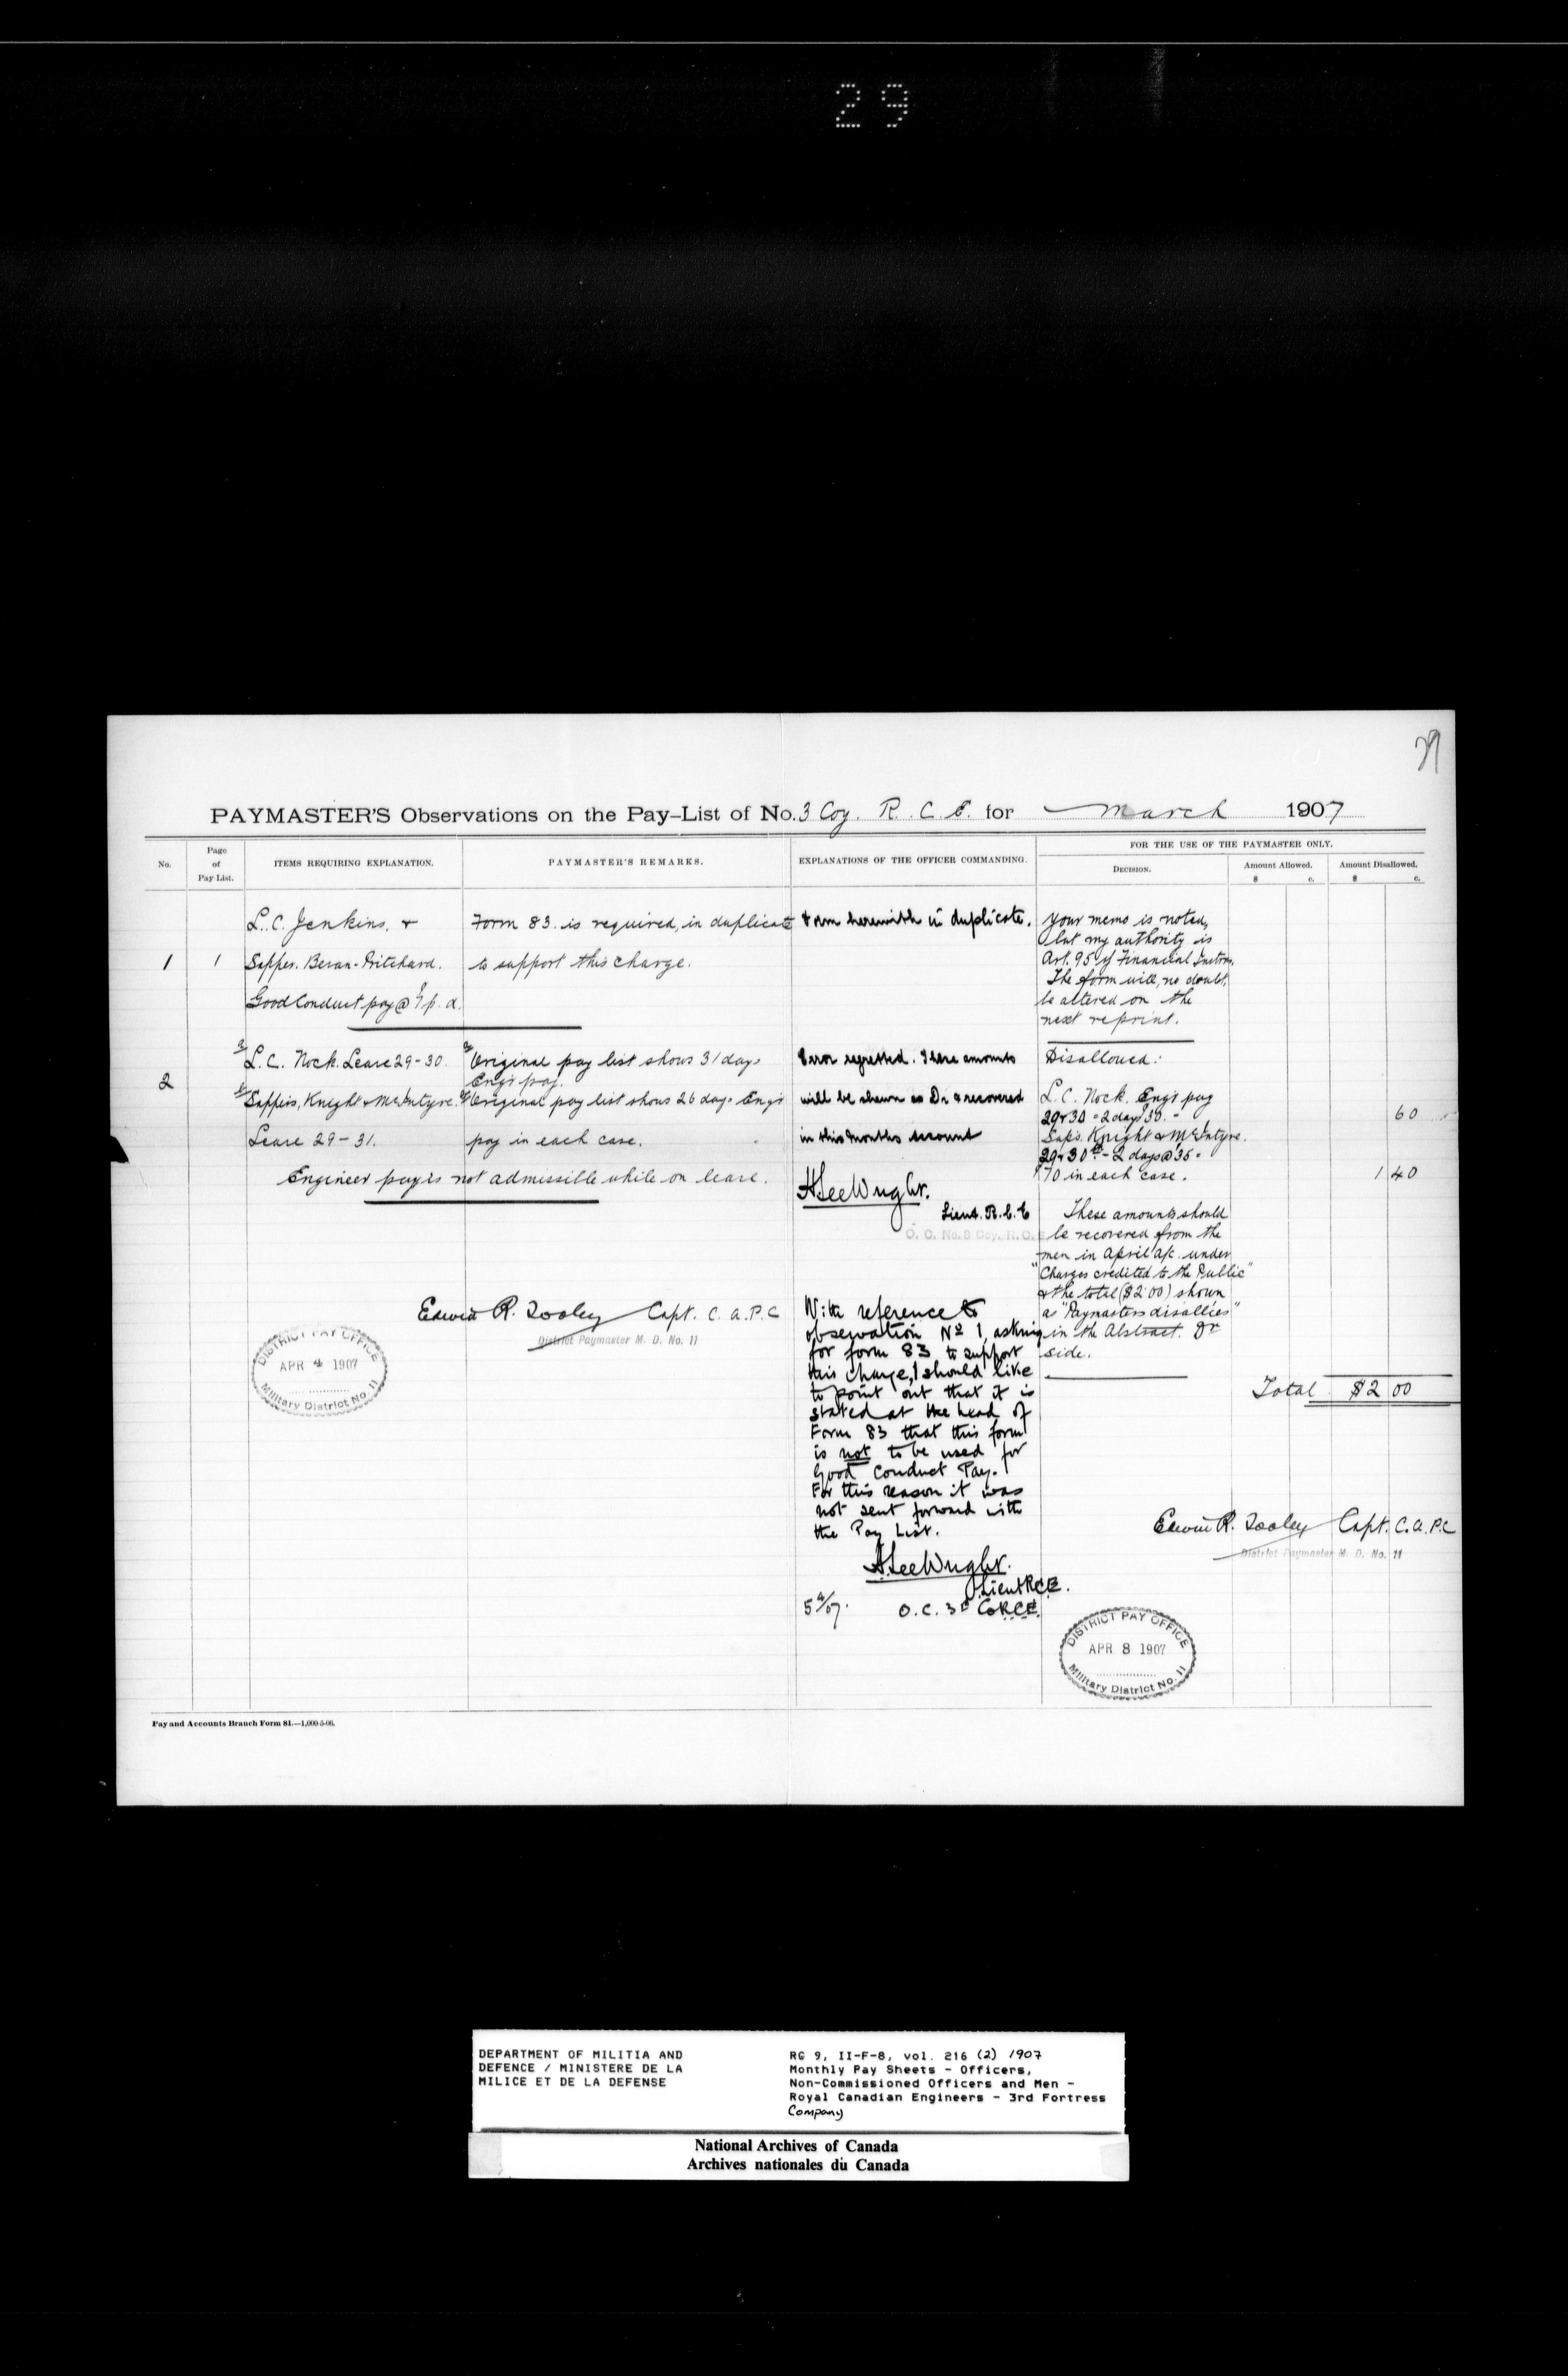 29
29
PAYMASTER'S Observations on the Pay-List of No. 3 Coy. R. C. E. for March 1907
No.
Page of Pay List.
ITEMS REQUIRING EXPLANATION.
PAYMASTER'S REMARKS.
EXPLANATIONS OF THE OFFICER COMMANDING.
FOR THE USE OF THE PAYMASTER ONLY.
DECISION.
Amount Allowed.
$ c.
Amount Disallowed.
$ c.
1
1
L. C. Jenkins, &
Sapper. Bevan-Pritchard.
Good Conduct pay @ p. d.
Form 83. is required, in duplicate
to support this charge.
Form herewith in duplicate.
Your memo is noted,
but my authority is
Art. 95 of Financial Instrns.
The form will, no doubt,
be altered on the
next reprint.
2
a/ L. C. Nock. Leave 29-30.
b/ Sappers, Knight & McIntyre.
Leave 29-31.
a/ Original pay list shows 31 days
Engr pay.
b/ Original pay list shows 26 days Engr
pay in each case.
Engineer pay is not admissible while on leave.
Error regretted. These amounts
will be shewn as Dr & recovered
in this months account
A Lee Wright.
Lieut. R.C.E
O. C. No. 3 Coy. R. C. E.
Disallowed:
L. C. Nock. Engr pay
29 & 30 = 2 days 30. =
60
Saprs. Knight & McIntyre.
29 & 30th - 2 days @ 35 =
70 in each case.
1 40
These amounts should
be recovered from the
men in April a/c. under
"Charges credited to the Public"
& the total ($2.00) shown
as "Paymasters disallces"
in the Abstract. Dr
side.
Total $2 00
Edwin R. Tooley Capt. C. A. P. C
District Paymaster M. D. No. 11
DISTRICT PAY OFFICE
APR 4 1907
Military District No. 11
With reference to
observation No 1, asking
for form 83 to support
this charge, I should like
to point out that it is
stated at the head of
Form 83 that this form
is not to be used for
Good Conduct Pay.
For this reason it was
not sent forward with
the Pay List.
A Lee Wright.
Lieut RCE.
5 4/07.
O. C. 3rd Co RCE.
Edwin R. Tooley Capt. C. A. P. C
District Paymaster M. D. No. 11
DISTRICT PAY OFFICE
APR 8 1907
Military District No. 11
Pay and Accounts Branch Form 81.—1,000-5-06.
DEPARTMENT OF MILITIA AND
DEFENCE / MINISTERE DE LA
MILICE ET DE LA DEFENSE
RG 9, II-F-8, vol. 216 (2) 1907
Monthly Pay Sheets - Officers,
Non-Commissioned Officers and Men -
Royal Canadian Engineers - 3rd Fortress
Company
National Archives of Canada
Archives nationales du Canada